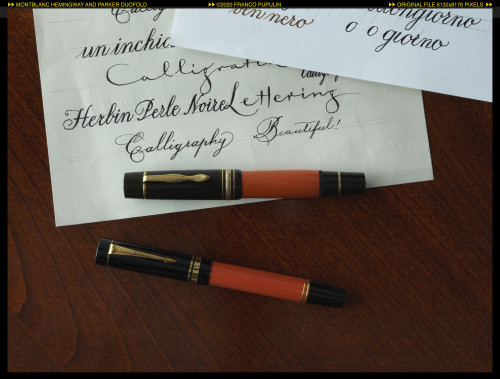 MONTBLANC HEMINGWAY AND PARKER DUOFOLD
©2020 FRANCO PUPULIN
ORIGINAL FILE 6132x8176 PIXELS
nero
o o giorno
un inchio
Herbin Perle Noire Lettering
Calligraphy Beautiful!